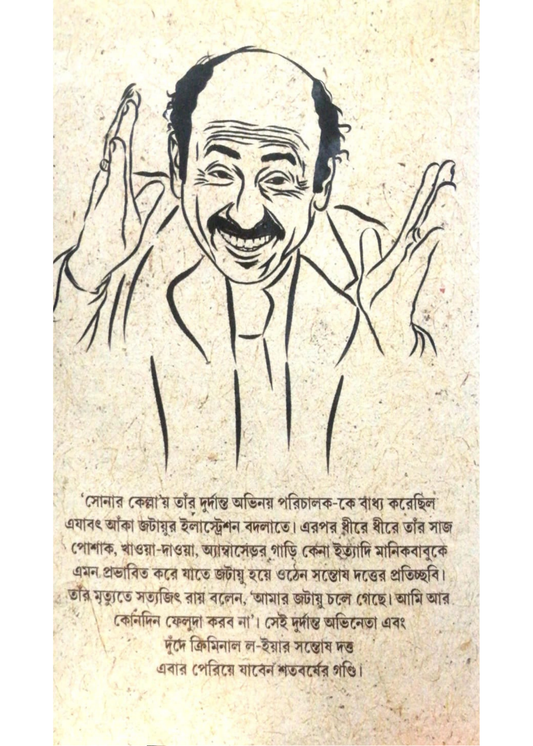 'সোনার কেল্লা'য় তাঁর দুর্দান্ত অভিনয় পরিচালক-কে বাধ্য করেছিল
এযাবৎ আঁকা জটায়ুর ইলাস্ট্রেশন বদলাতে। এরপর ধীরে ধীরে তাঁর সাজ
পোশাক, খাওয়া-দাওয়া, অ্যাম্বাসেডর গাড়ি কেনা ইত্যাদি মানিকবাবুকে
এমন প্রভাবিত করে যাতে জটায়ু হয়ে ওঠেন সন্তোষ দত্তের প্রতিচ্ছবি।
তাঁর মৃত্যুতে সত্যজিৎ রায় বলেন, 'আমার জটায়ু চলে গেছে। আমি আর
কোনদিন ফেলুদা করব না'। সেই দুর্দান্ত অভিনেতা এবং
দুঁদে ক্রিমিনাল ল-ইয়ার সন্তোষ দত্ত
এবার পেরিয়ে যাবেন শতবর্ষের গণ্ডি।